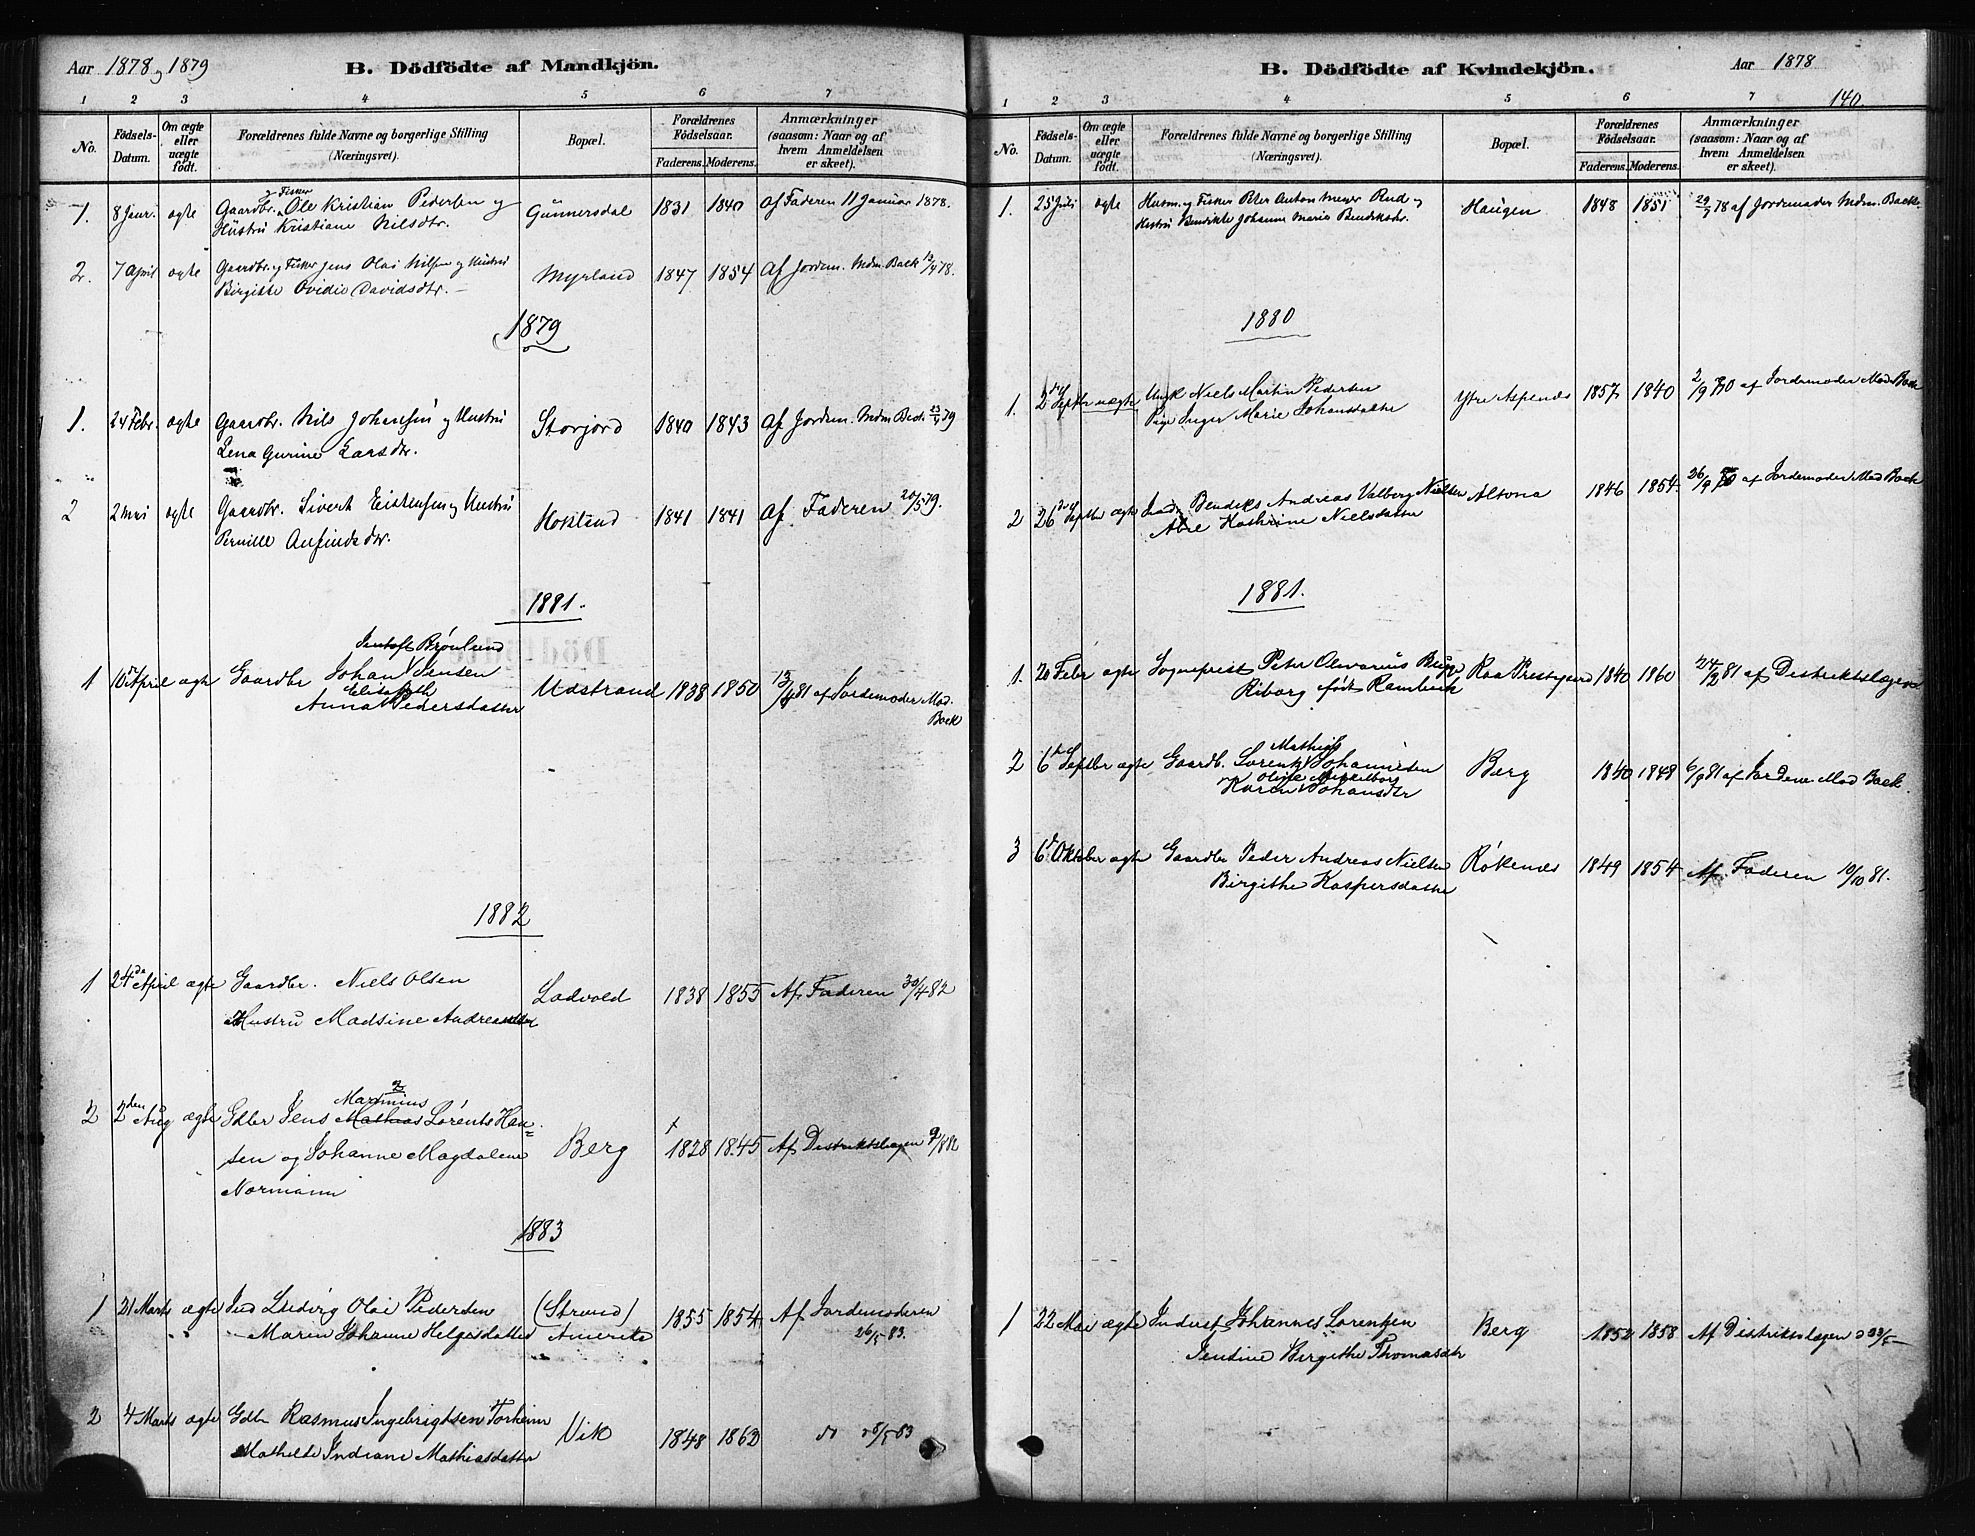 Aar 1878 og 1879
B. Dödfödte af Mandkjön.
1 2 3 4 5 6 7
No. Födsels-Datum. Om ægte eller uægte födt. Forældrenes fulde Navne og borgerlige Stilling (Næringsvei). Bopæl. Forældrenes Födselsaar. Faderens. Moderens. Anmærkninger (saasom: Naar og af hvem Anmeldelsen er skeet).
1. 8 Janr. ægte Gaardbr. og Fisker Ole Kristian Pedersen og Gunnersdal 1831 1840 Af Faderen 11 Januar 1878.
Hustru Kristiane Nilsdtr.
2. 7 April ægte Gaardbr. og Fisker Jens Olai Nilsen og Hustru Myrland 1847 1854 Af Jordm. Mdm. Baek 12/4 78.
Birgitte Ovidie Davidsdtr.
1879
1. 24 Febr. ægte Gaardbr. Nils Johansen og Hustru Storjord 1840 1843 Af Jordm. Mdm. 79
Lena Gurine Larsdtr.
2 2 Mai ægte Gaardbr. Sivert Eistensen og Hustru 1841 1841 Af Faderen 20/5 79.
Pernille Anfindsdtr.
1881.
Brönlund
1 10de April ægte Gaardbr Johan Jensen Udstrand 1838 1850 13/4 81 af Jordemoder Mad.
Elisabeth
Anna Pedersdatter Baek
1882
1 24de April ægte Gaardbr. Niels Olsen Ladvold 1838 1855 Af Faderen 30/4 82
Hustru Madsine Andreasdatter
Marinius
2 2den Aug ægte Gdbr Jens Mathias Lörents Han- Berg 1828 1845 Af Distriktslægen 9/8 82
sen og Johanne Magdalene
Normann
1883
1 21 Marts ægte Ind Ludvig Olai Pedersen (Strand) 1855 1854 Af Jordemoderen
Maren Johanne Helgesdatter Amerika 26/5 83.
2 4 Marts ægte Gdbr Rasmus Ingebrigtsen Torheim Vik 1848 1862 do 28/5 83
Mathilde Indiane Mathiasdatter
B. Dödfödte af Kvindekjön.
Aar 1878
140.
1 2 3 4 5 6 7
No. Födsels-Datum. Om ægte eller uægte födt. Forældrenes fulde Navne og borgerlige Stilling (Næringsvei). Bopæl. Forældrenes Födselsaar. Faderens. Moderens. Anmærkninger (saasom: Naar og af hvem Anmeldelsen er skeet).
1. 25 Juli ægte Husm. og Fisker Peter Anton Meyer Rud og Haugen 1848 1851 29/7 78 af Jordemoder Mdm. Baek.
Hustru Bendikte Johanne Maria Bendiksdr.
1880
1. 2den Septbr uægte Ungk Niels Martin Pedersen Ytre Aspenes 1857 1840 2/9 80 af Jordemoder Mad Baek
Pige Inger Marie Johansdatter
2 26de Septbr ægte Bendiks Andreas Valberg Nielsen Altona 1846 1854 26/9 80 af Jordemoder Mad Baek
Kathrine Nielsdatter
1881.
1. 20 Febr ægte Sognepræst Peter Olivarius Bugge Præstegaard 1840 1860 24/2 81 af Distriktslægen
Riborg født
Mathias
2 6te Septbr ægte Gaardb. Lorents Johannesen Berg 1840 1848 6/9 81 af Jordem. Mad Baek.
Karen Johansdtr
3 6te Oktober ægte Gaardbr Peder Andreas Nielsen Rökenes 1849 1854 Af Faderen 10/10 81.
Birgithe Kaspersdatter
1 22 Mai ægte Inderst Johannes Lorentzen Berg 1852 1858 Af Distriktslægen
Jensine Birgithe Thomasdtr